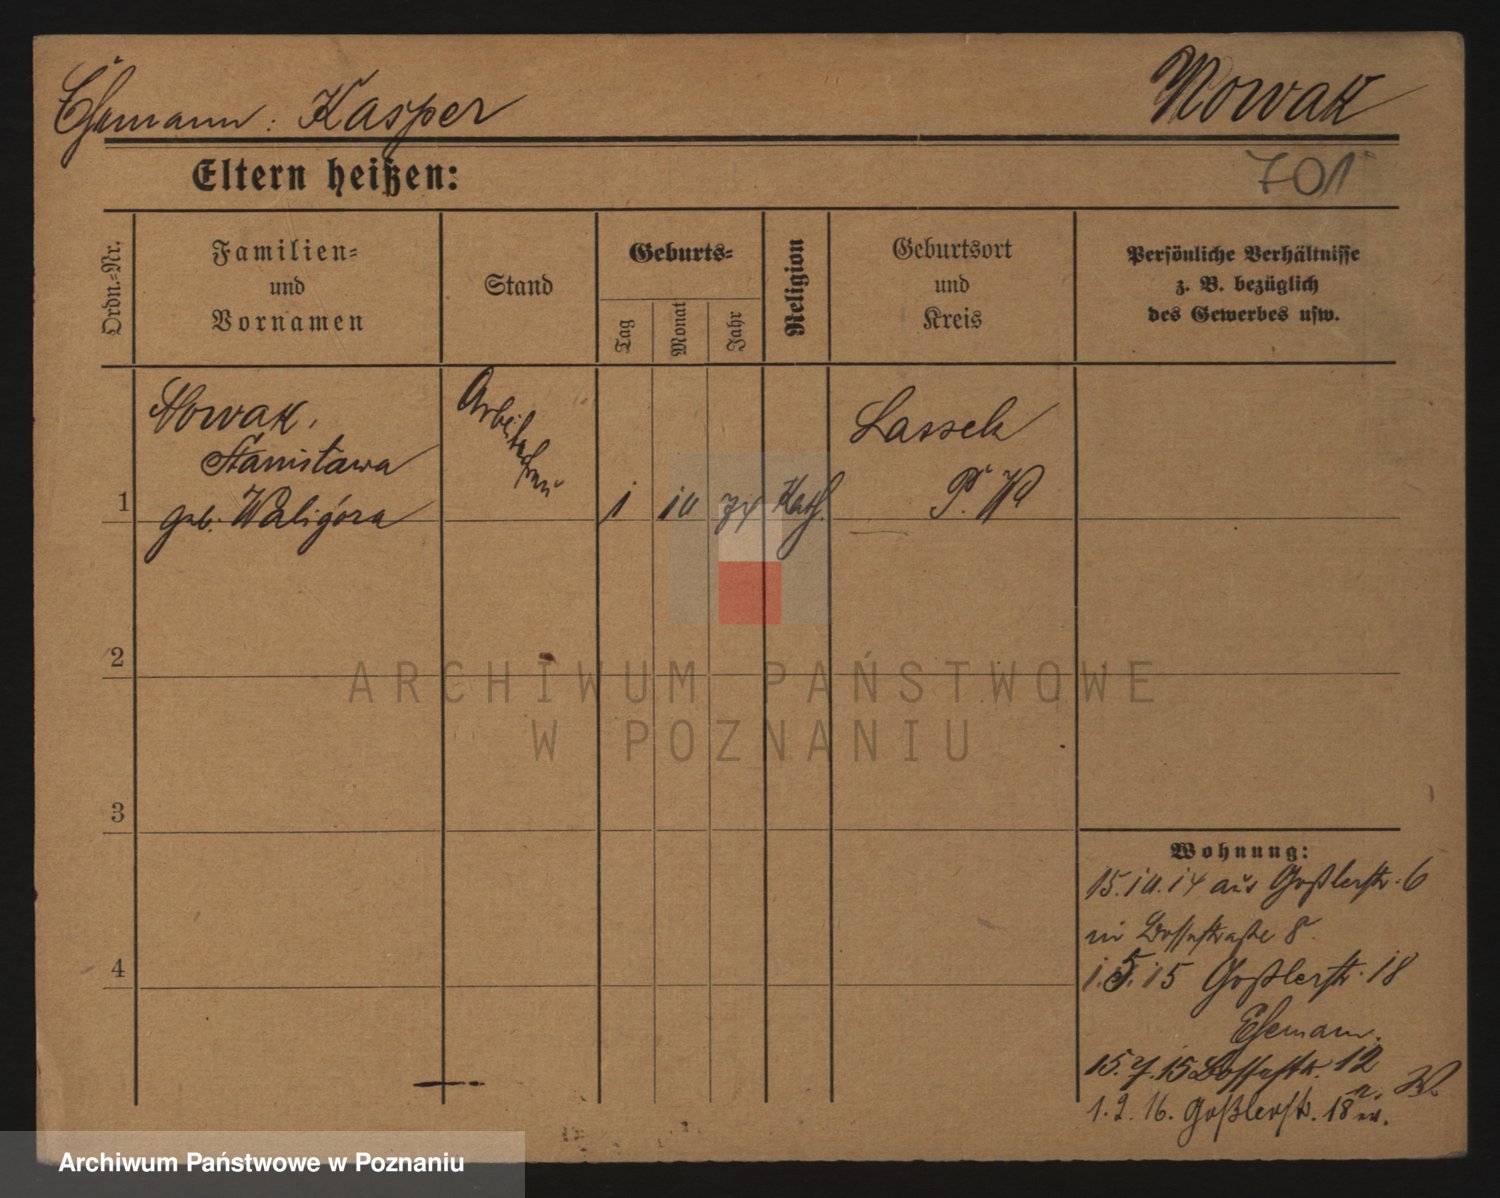 Ehemann: Kasper
Nowak
Eltern heißen:
701
Ordn.-Nr.
Familien-
und
Vornamen
Stand
Geburts-
Tag
Monat
Jahr
Religion
Geburtsort
und
Kreis
Persönliche Verhältnisse
z. B. bezüglich
des Gewerbes usw.
1
Nowak,
Stanisława
geb. Waligóra
Arbeiterfrau
1
10
Kath.
Lassek
P. W
2
3
4
Wohnung:
15.10.14 aus Goßlerstr. 6
in 8.
1.5.15 Goßlerstr. 18
Ehemann.
15.7.15 12
1.2.16. Goßlerstr. 18
ARCHIWUM PAŃSTWOWE
W POZNANIU
Archiwum Państwowe w Poznaniu